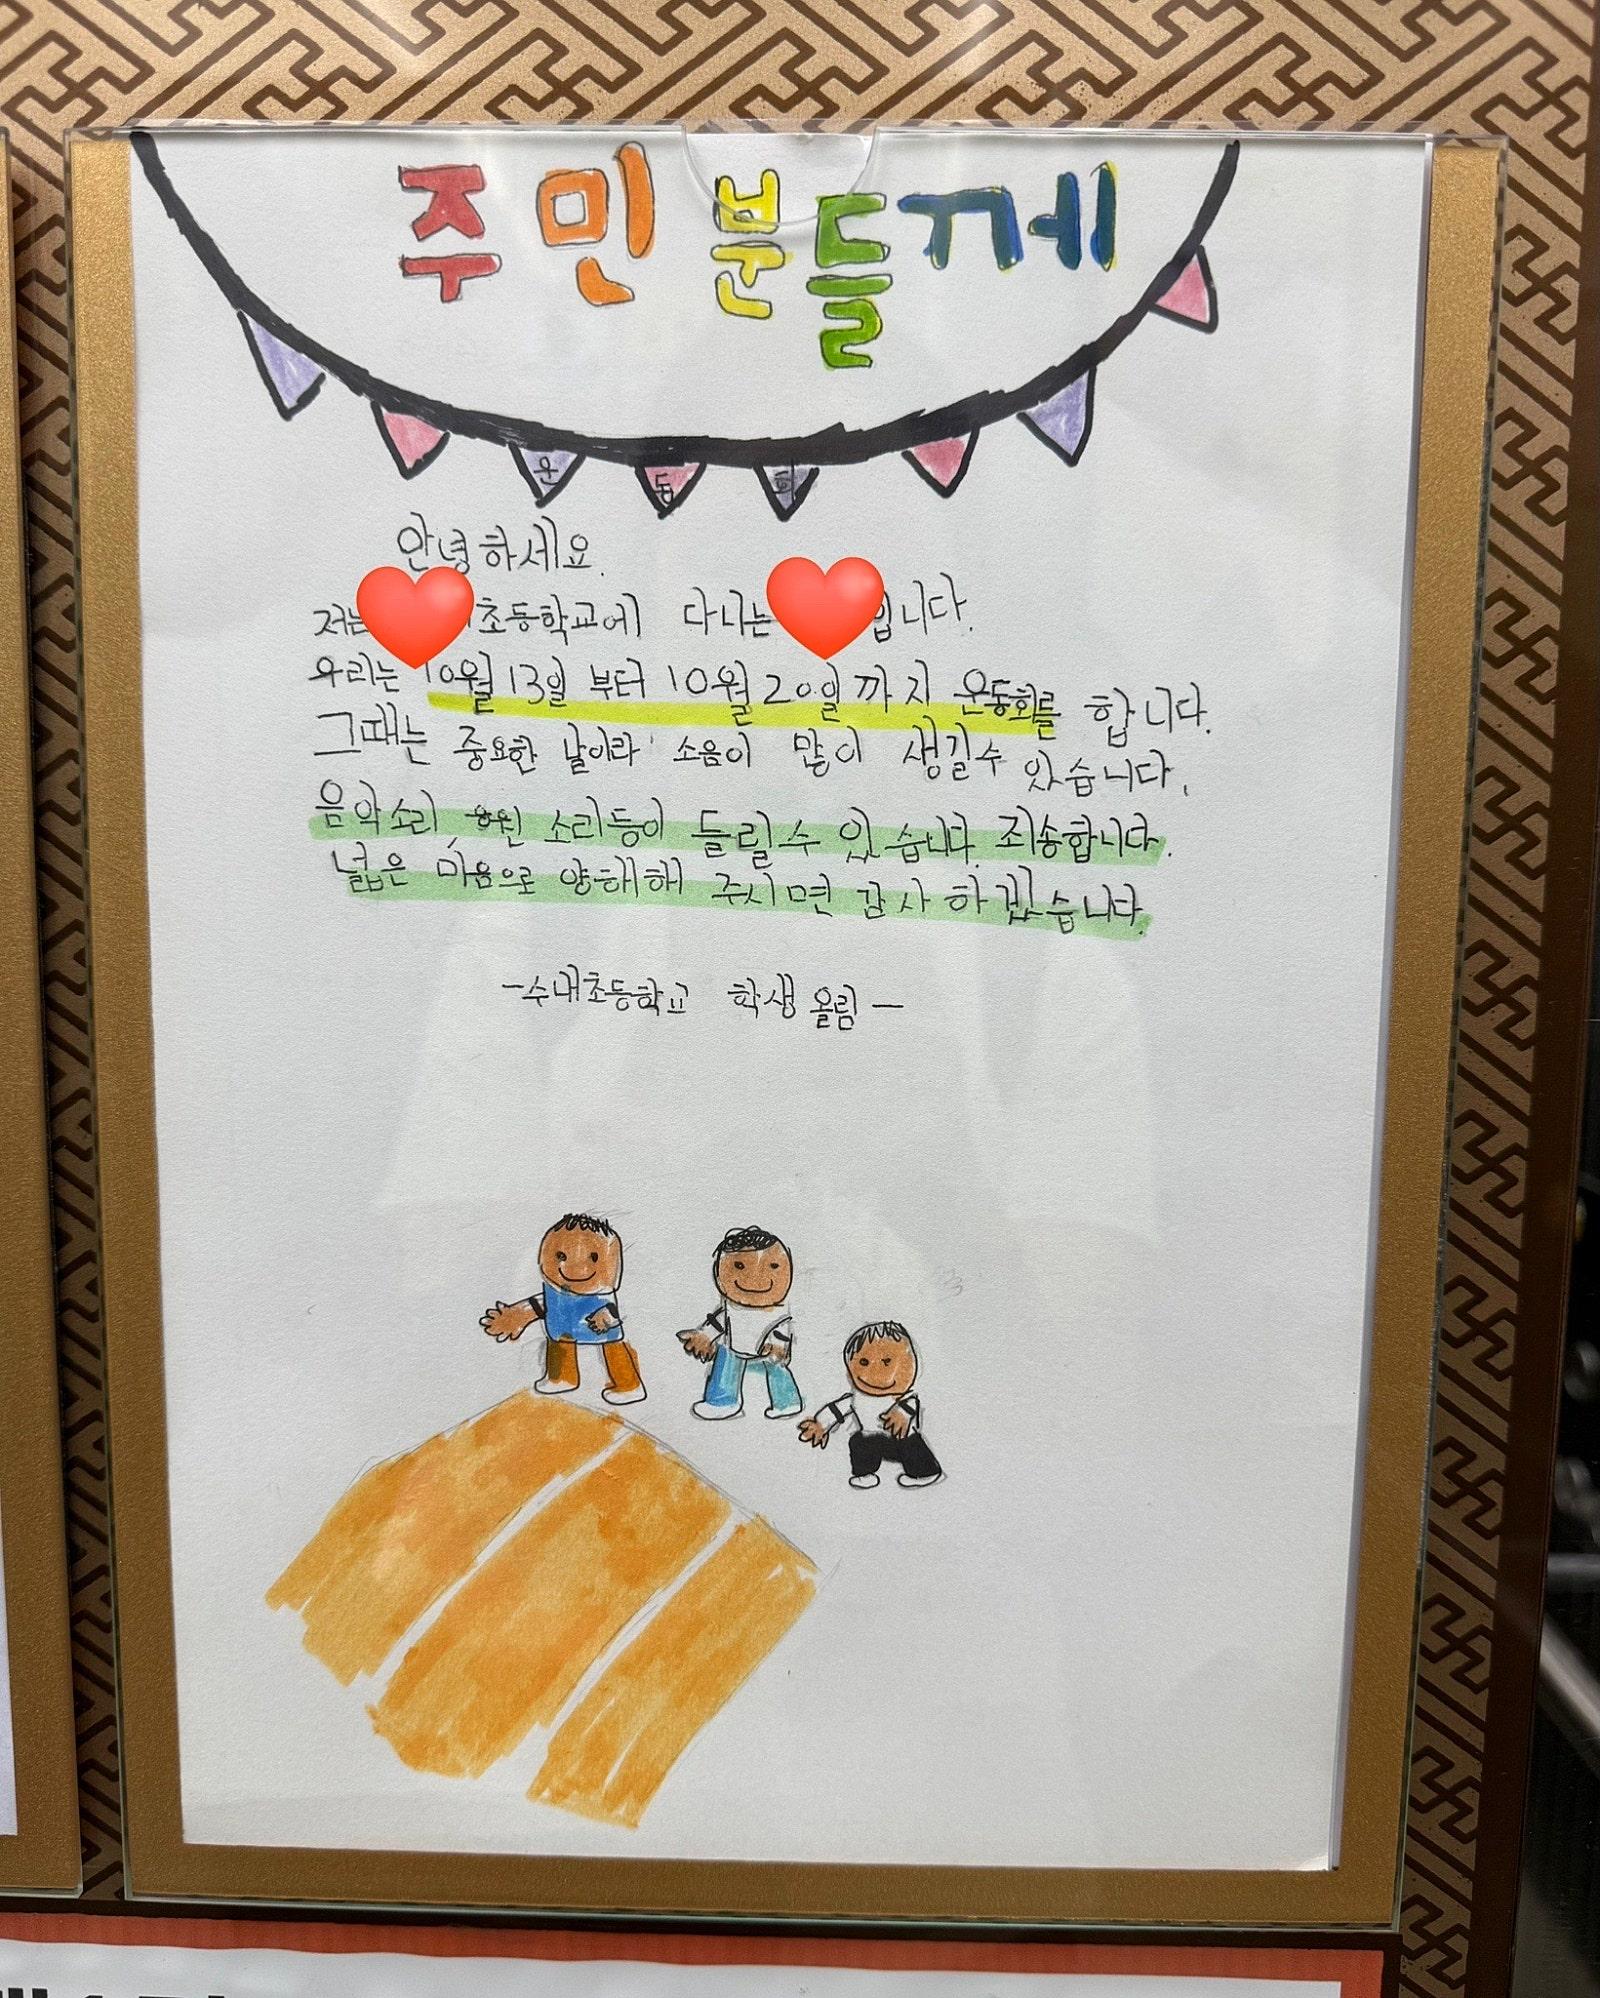 주민분들께
운동회
안녕하세요.
저는 초등학교에 다니는 입니다.
우리는 10월 13일 부터 10월 20일까지 운동회를 합니다.
그때는 중요한 날이라 소음이 많이 생길수 있습니다.
음악소리, 응원 소리등이 들릴수 있습니다. 죄송합니다.
넓은 마음으로 양해해 주시면 감사하겠습니다.
-수내초등학교 학생 올림-